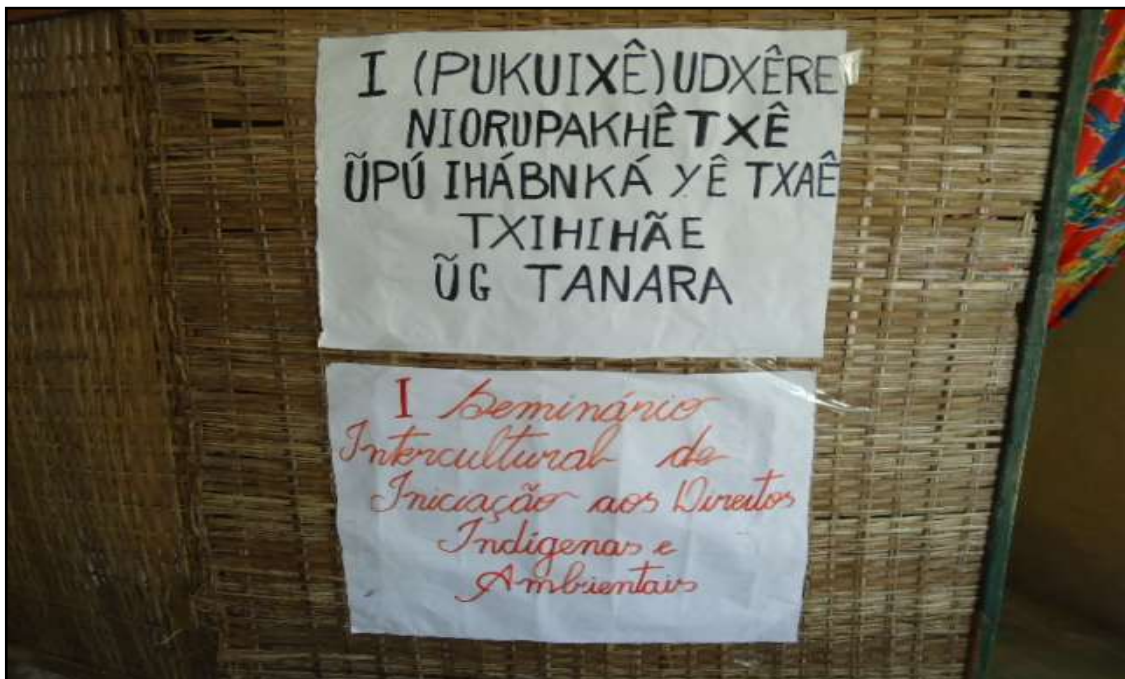 I (PUKUIXÊ) UDXÊRE
NIORUPAKHÊTXÊ
ŨPÚ IHÁBNKÁ YÊ TXAÊ
TXIHIHÃE
ŨG TANARA
I Seminário
Intercultural de
Iniciação aos Direitos
Indígenas e
Ambientais